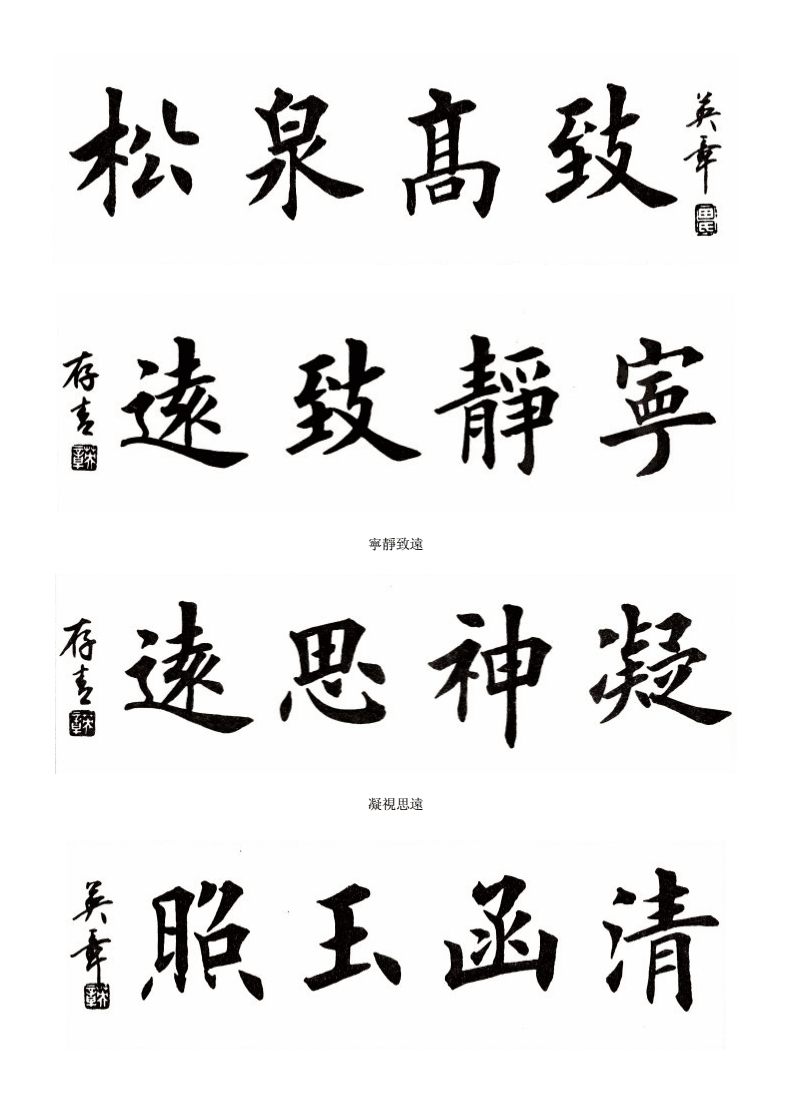 松泉高致 英章
寧靜致遠 存青
寧靜致遠
凝神思遠 存青
凝視思遠
清函玉照 英章